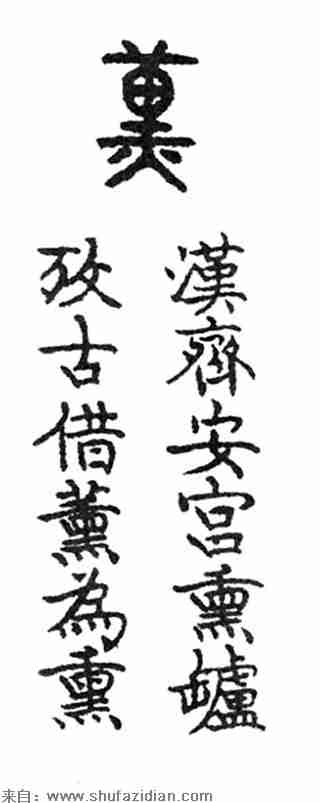 薰
漢齊安宮熏罏
攷古借薰為熏
来自：www.shufazidian.com